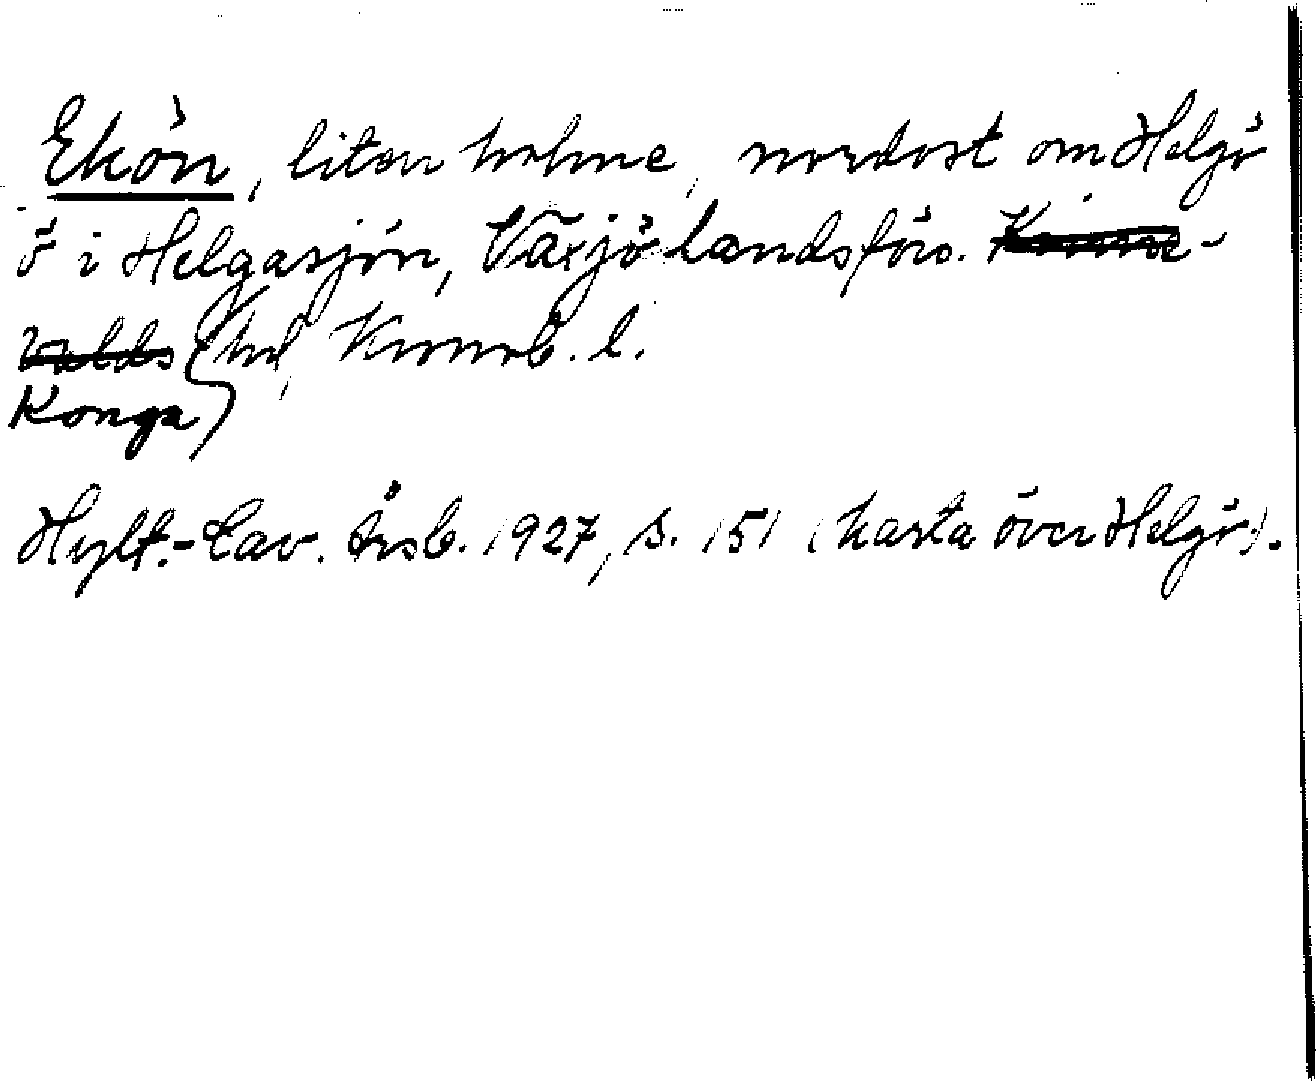 Ekön, liten holme, nordost om Helgö
ö i Helgasjön, Växjö landsförs. Kinne-
valds hd, Kronob. l.
Konga
Hylt.-Cav. årsb. 1927, s. 151 (karta över Helgö).